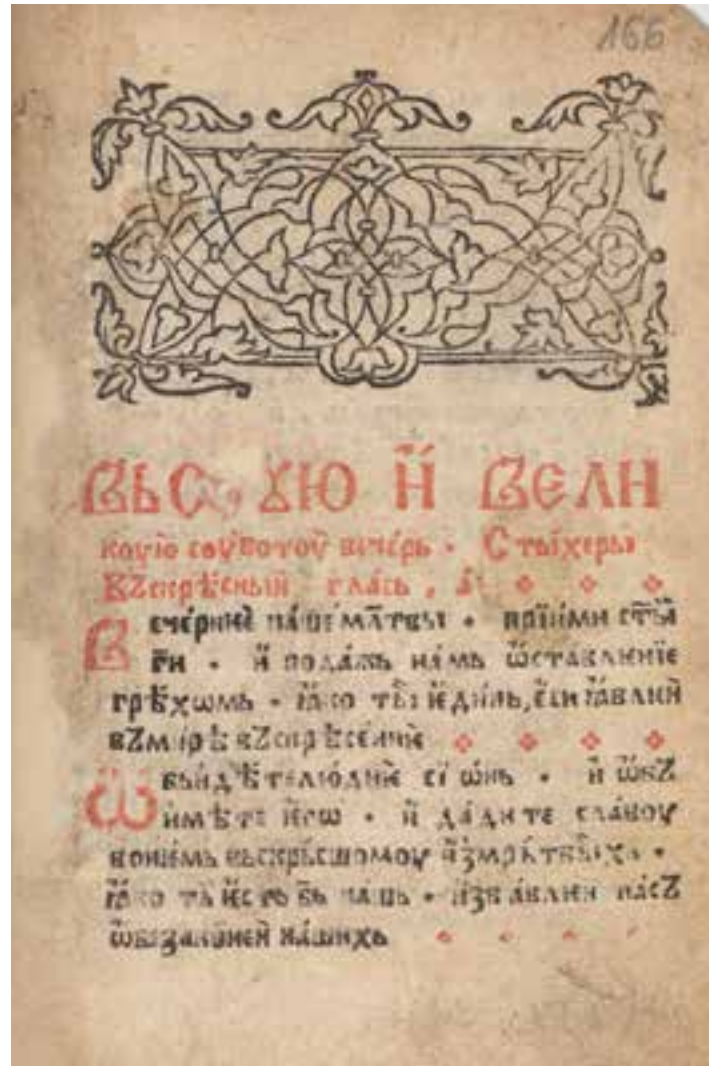 166
ВЬС ꙊЮ И҆́ ВЕЛИ
коую соуботоу вече́рь · Стыхеры
Въскрѣсный гла́сь , а҃
Вече́рниѥ на́ше мл҃твы · прїи́ми ст҃ы
ги · и҆ пода́жь на́мь ѿставлѥнїе
грѣхѡмь · ꙗ҆́ко ты̀ ѥ҆ди́нь, ѥ҆си ꙗ҆влѥи
вꙁмирѣ вꙁскрѣсениѥ
Ѡ҆бьидѣте лю́диѥ сїѡ́нь · и҆ ѡ҆бꙁ
имѣте ѥ҆го · и҆ да́дите сла́воу
вони́емь вьскрьсшомоу и҆змрьтвы́хь ·
ꙗ҆́ко ть ѥ҆сть бь нашь · и҆зба́влѥи на́сꙁ
ѿбезакониѥи на́шихь